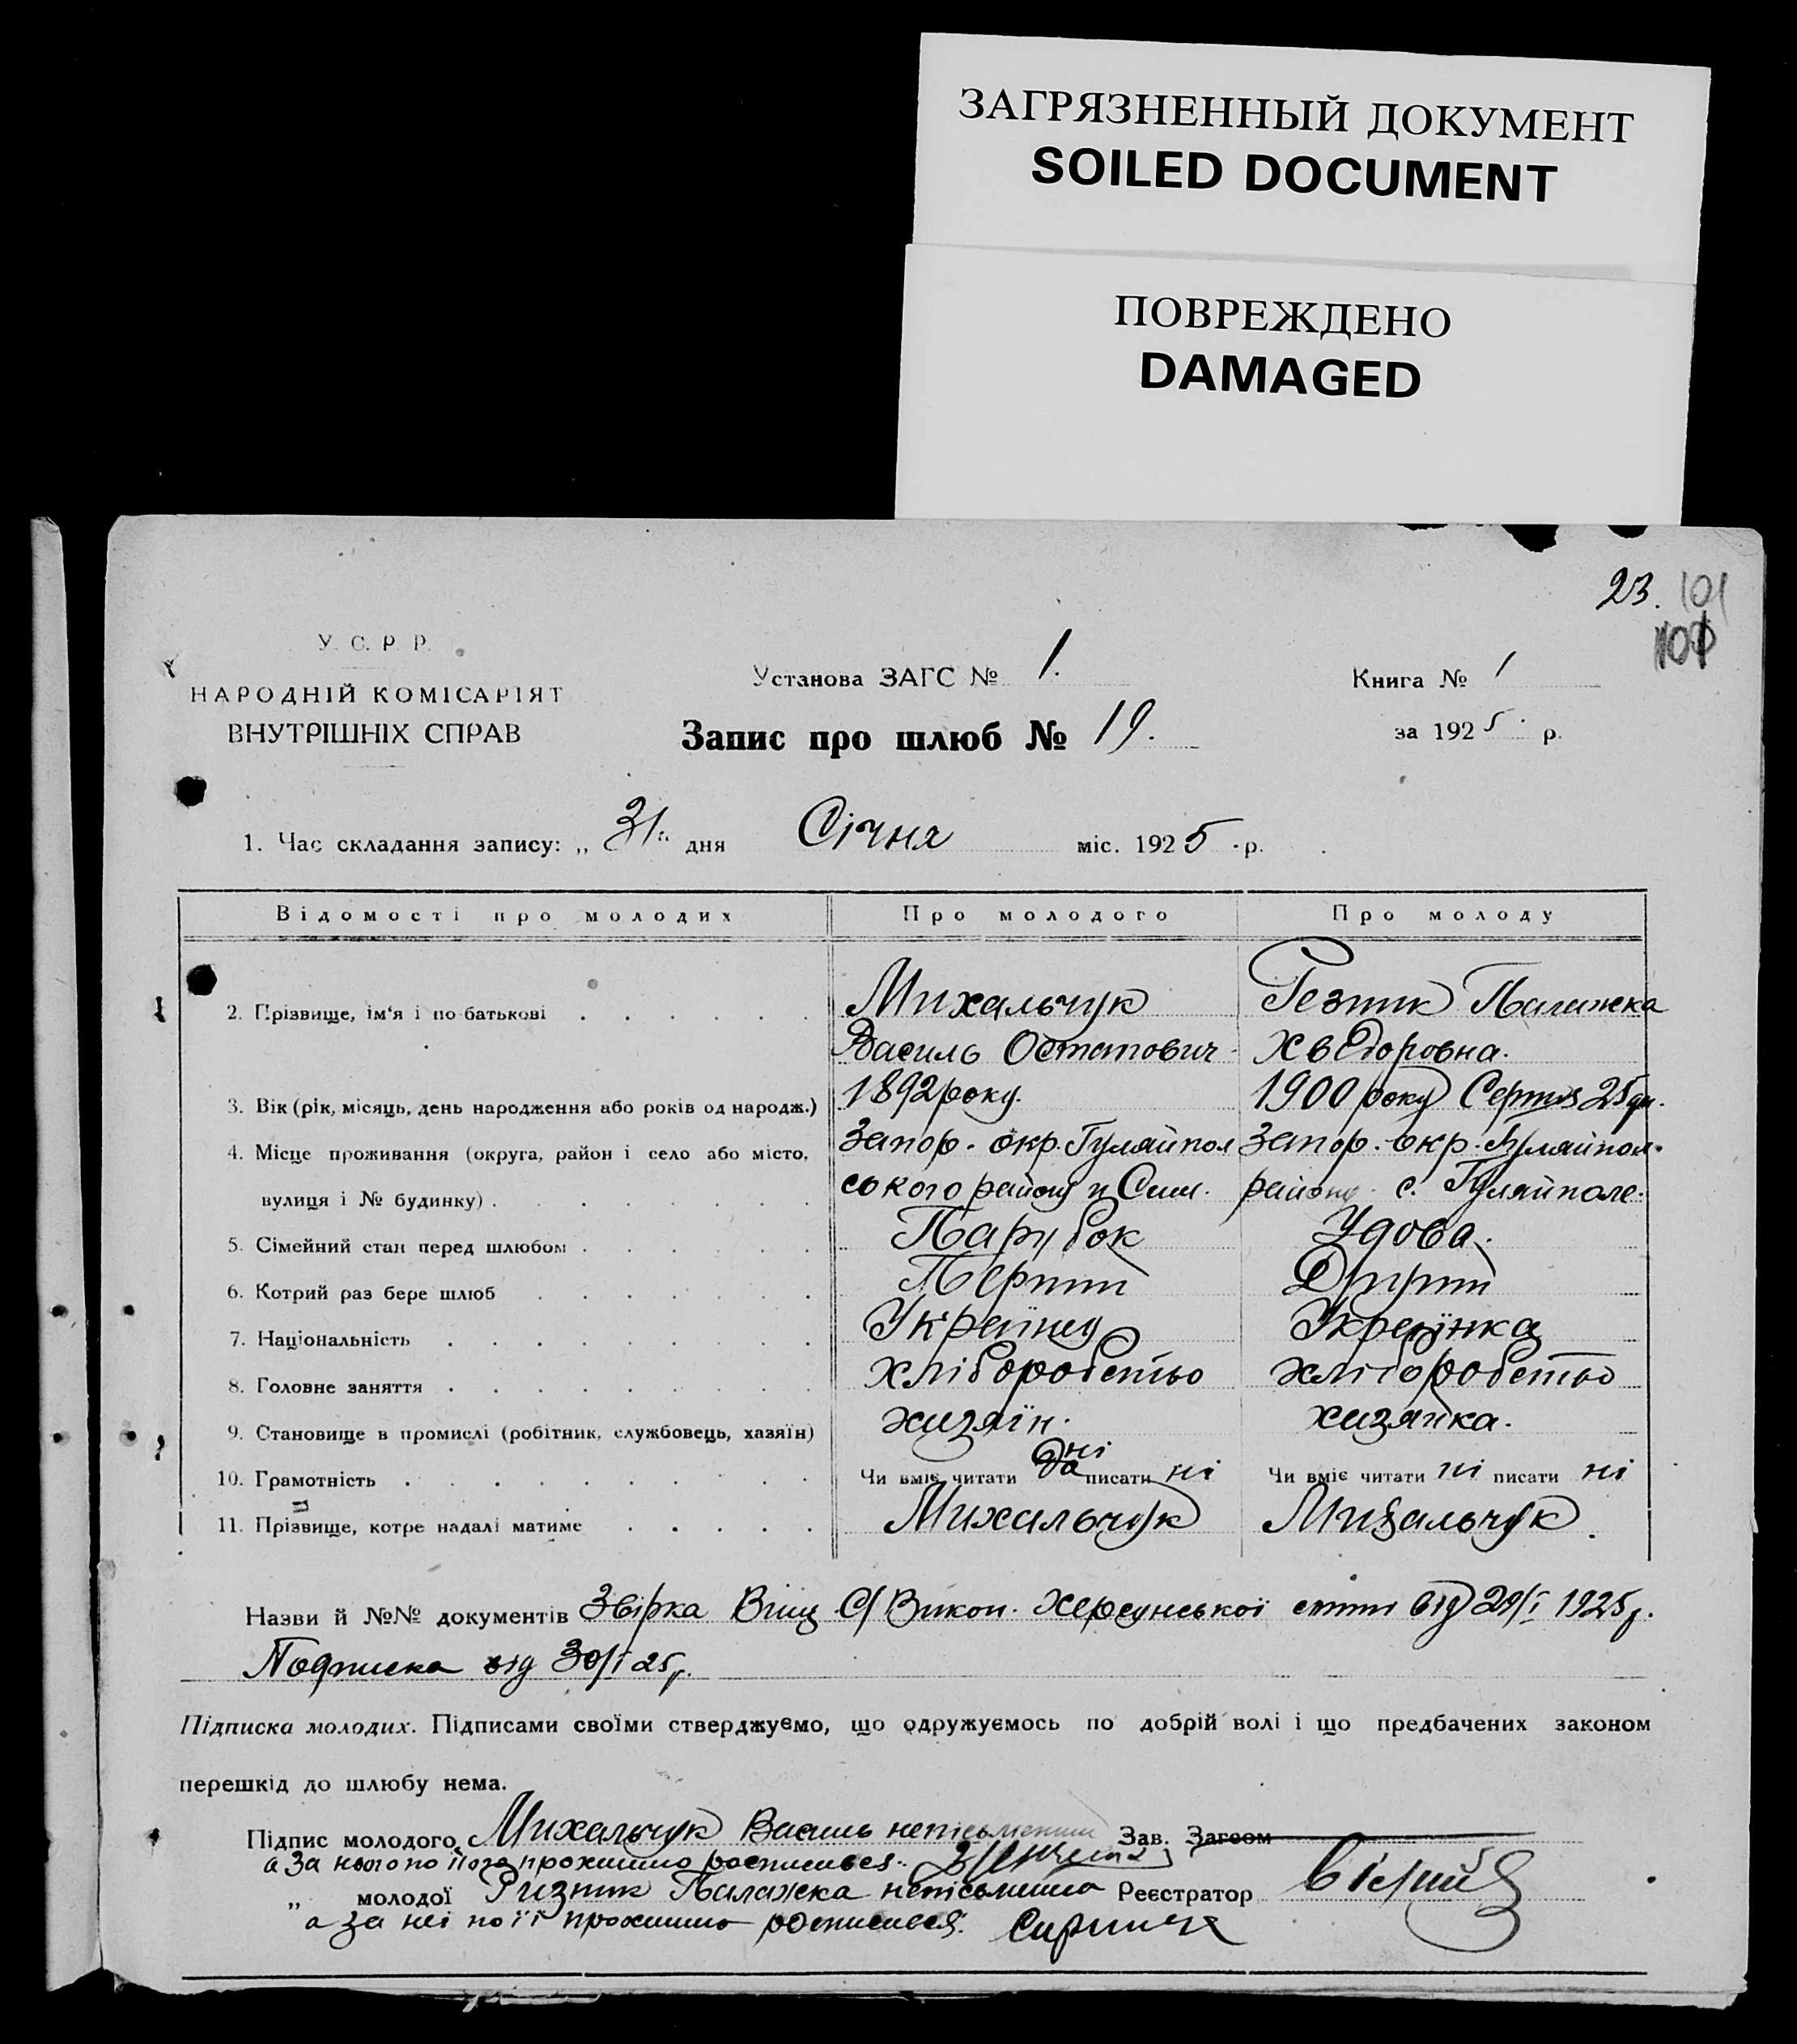 ЗАГРЯЗНЕННЫЙ ДОКУМЕНТ
SOILED DOCUMENT
ПОВРЕЖДЕНО
DAMAGED
23. 101
У. С. Р. Р.
НАРОДНІЙ КОМІСАРІЯТ
ВНУТРІШНІХ СПРАВ
Установа ЗАГС № 1.
Запис про шлюб № 19.
Книга № 1
за 1925 р.
1. Час складання запису: „ 31 " дня Січня міс. 1925 р.
Відомості про молодих Про молодого Про молоду
2. Прізвище, ім'я і по батькові Михальчук Резник Палажка
Василь Остапович Хведоровна.
3. Вік (рік, місяць, день народження або років од народж.) 1892 року. 1900 року Серпня 25 дн.
4. Місце проживання (округа, район і село або місто, Запор. окр. Гуляйпол Запор. окр. Гуляйпол.
вулиця і № будинку) ського району району с. Гуляйполе.
5. Сімейний стан перед шлюбом Парубок Удова.
6. Котрий раз бере шлюб Перший Другий
7. Національність Українець Українка
8. Головне заняття хліборобство хліборобство
9. Становище в промислі (робітник, службовець, хазяїн) хазяїн. хазяйка.
10. Грамотність Чи вміє читати ні писати ні Чи вміє читати ні писати ні
11. Прізвище, котре надалі матиме Михальчук Михальчук.
Назви й №№ документів С/Викон. Херсунської від 29/I 1925 р.
Подписка від 30/I 25 р.
Підписка молодих. Підписами своїми стверджуємо, що одружуємось по добрій волі і що предбачених законом
перешкід до шлюбу нема.
Підпис молодого Михальчук Василь неписьменний Зав. Загсом
а за нього по його проханню росписався
„ молодої Ризник Палажка неписьменна Реєстратор
а за неї по її проханню росписався